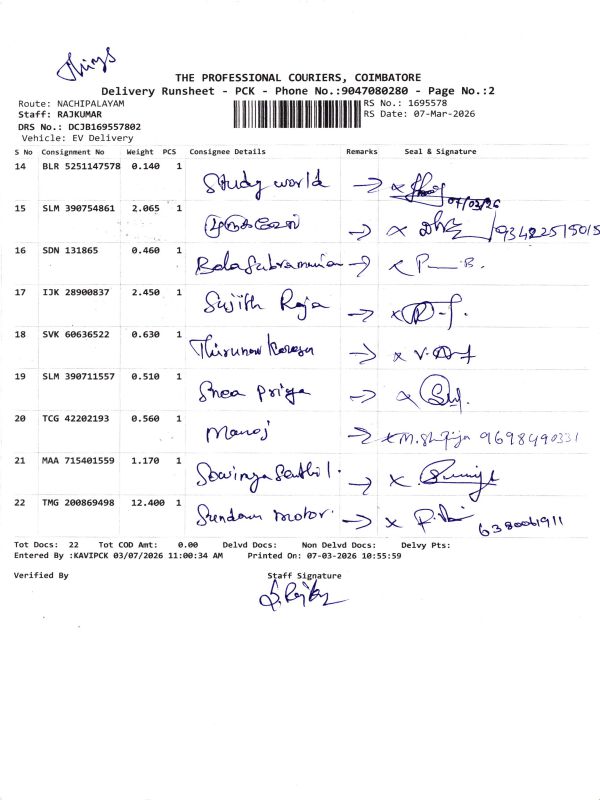 THE PROFESSIONAL COURIERS, COIMBATORE
Delivery Runsheet - PCK - Phone No.:9047080280 - Page No.:2
Route: NACHIPALAYAM
RS No.: 1695578
Staff: RAJKUMAR
RS Date: 07-Mar-2026
DRS No.: DCJB169557802
Vehicle: EV Delivery
S No Consignment No Weight PCS Consignee Details Remarks Seal & Signature
14 BLR 5251147578 0.140 1 Study world →
07/03/26
15 SLM 390754861 2.065 1 →
16 SDN 131865 0.460 1 Bala Subramanian →
17 IJK 28900837 2.450 1 Sujith Raja →
18 SVK 60636522 0.630 1 →
19 SLM 390711557 0.510 1 Priya →
20 TCG 42202193 0.560 1 Manoj → x 9698490331
21 MAA 715401559 1.170 1 → x
22 TMG 200869498 12.400 1 motor. → x 6380061911
Tot Docs: 22 Tot COD Amt: 0.00 Delvd Docs: Non Delvd Docs: Delvy Pts:
Entered By :KAVIPCK 03/07/2026 11:00:34 AM Printed On: 07-03-2026 10:55:59
Verified By Staff Signature